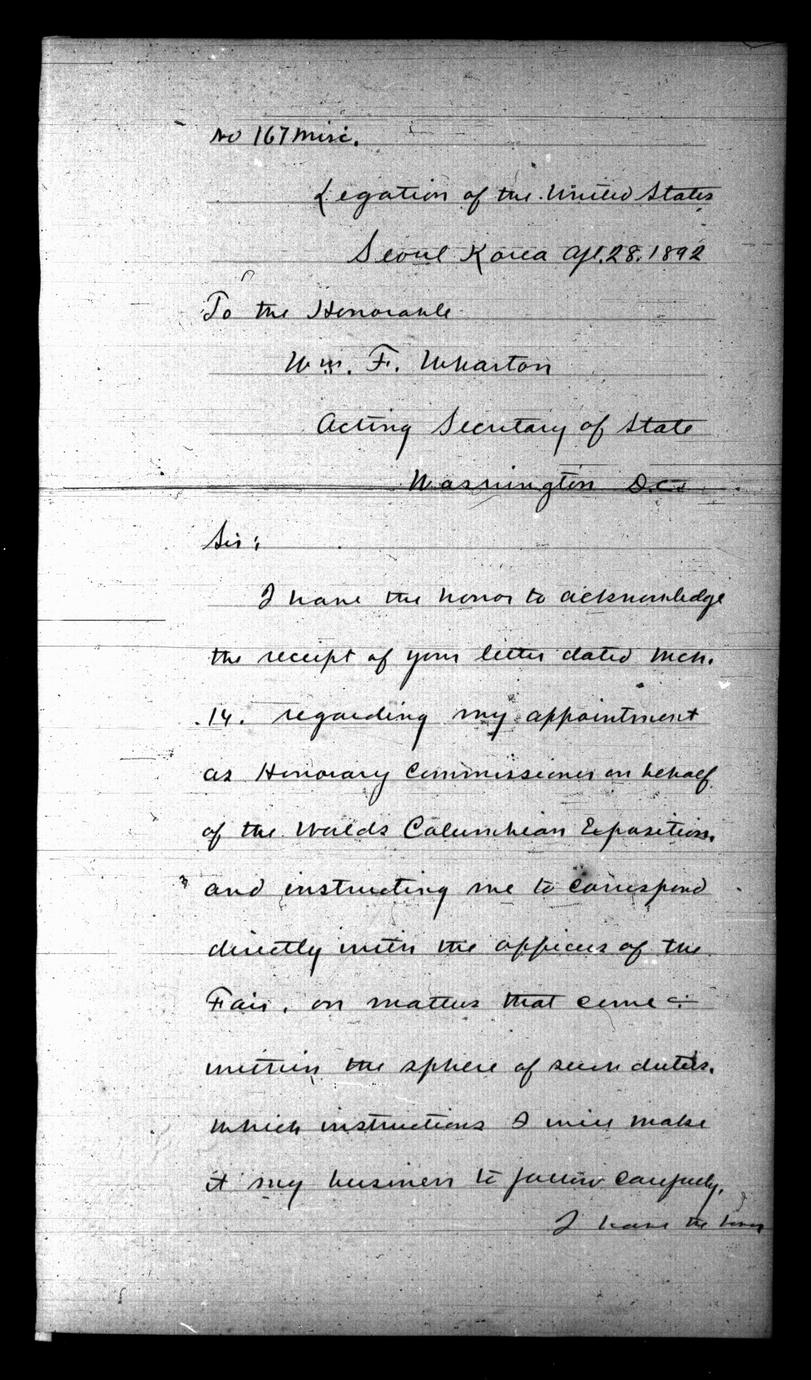 No 167 Misc.
Legation of the United States
Seoul Korea Apl. 28. 1892
To the Honorable
Wm. F. Wharton
Acting Secretary of State
Washington D.C.
Sir:
I have the honor to acknowledge
the receipt of your letter dated Mch.
14. regarding my appointment
as Honorary Commissioner on behalf
of the Worlds Columbian Exposition.
and instructing me to correspond
directly with the officers of the
Fair, on matters that come
within the sphere of such duties.
which instructions I will make
it my business to follow carefully.
I have the honor